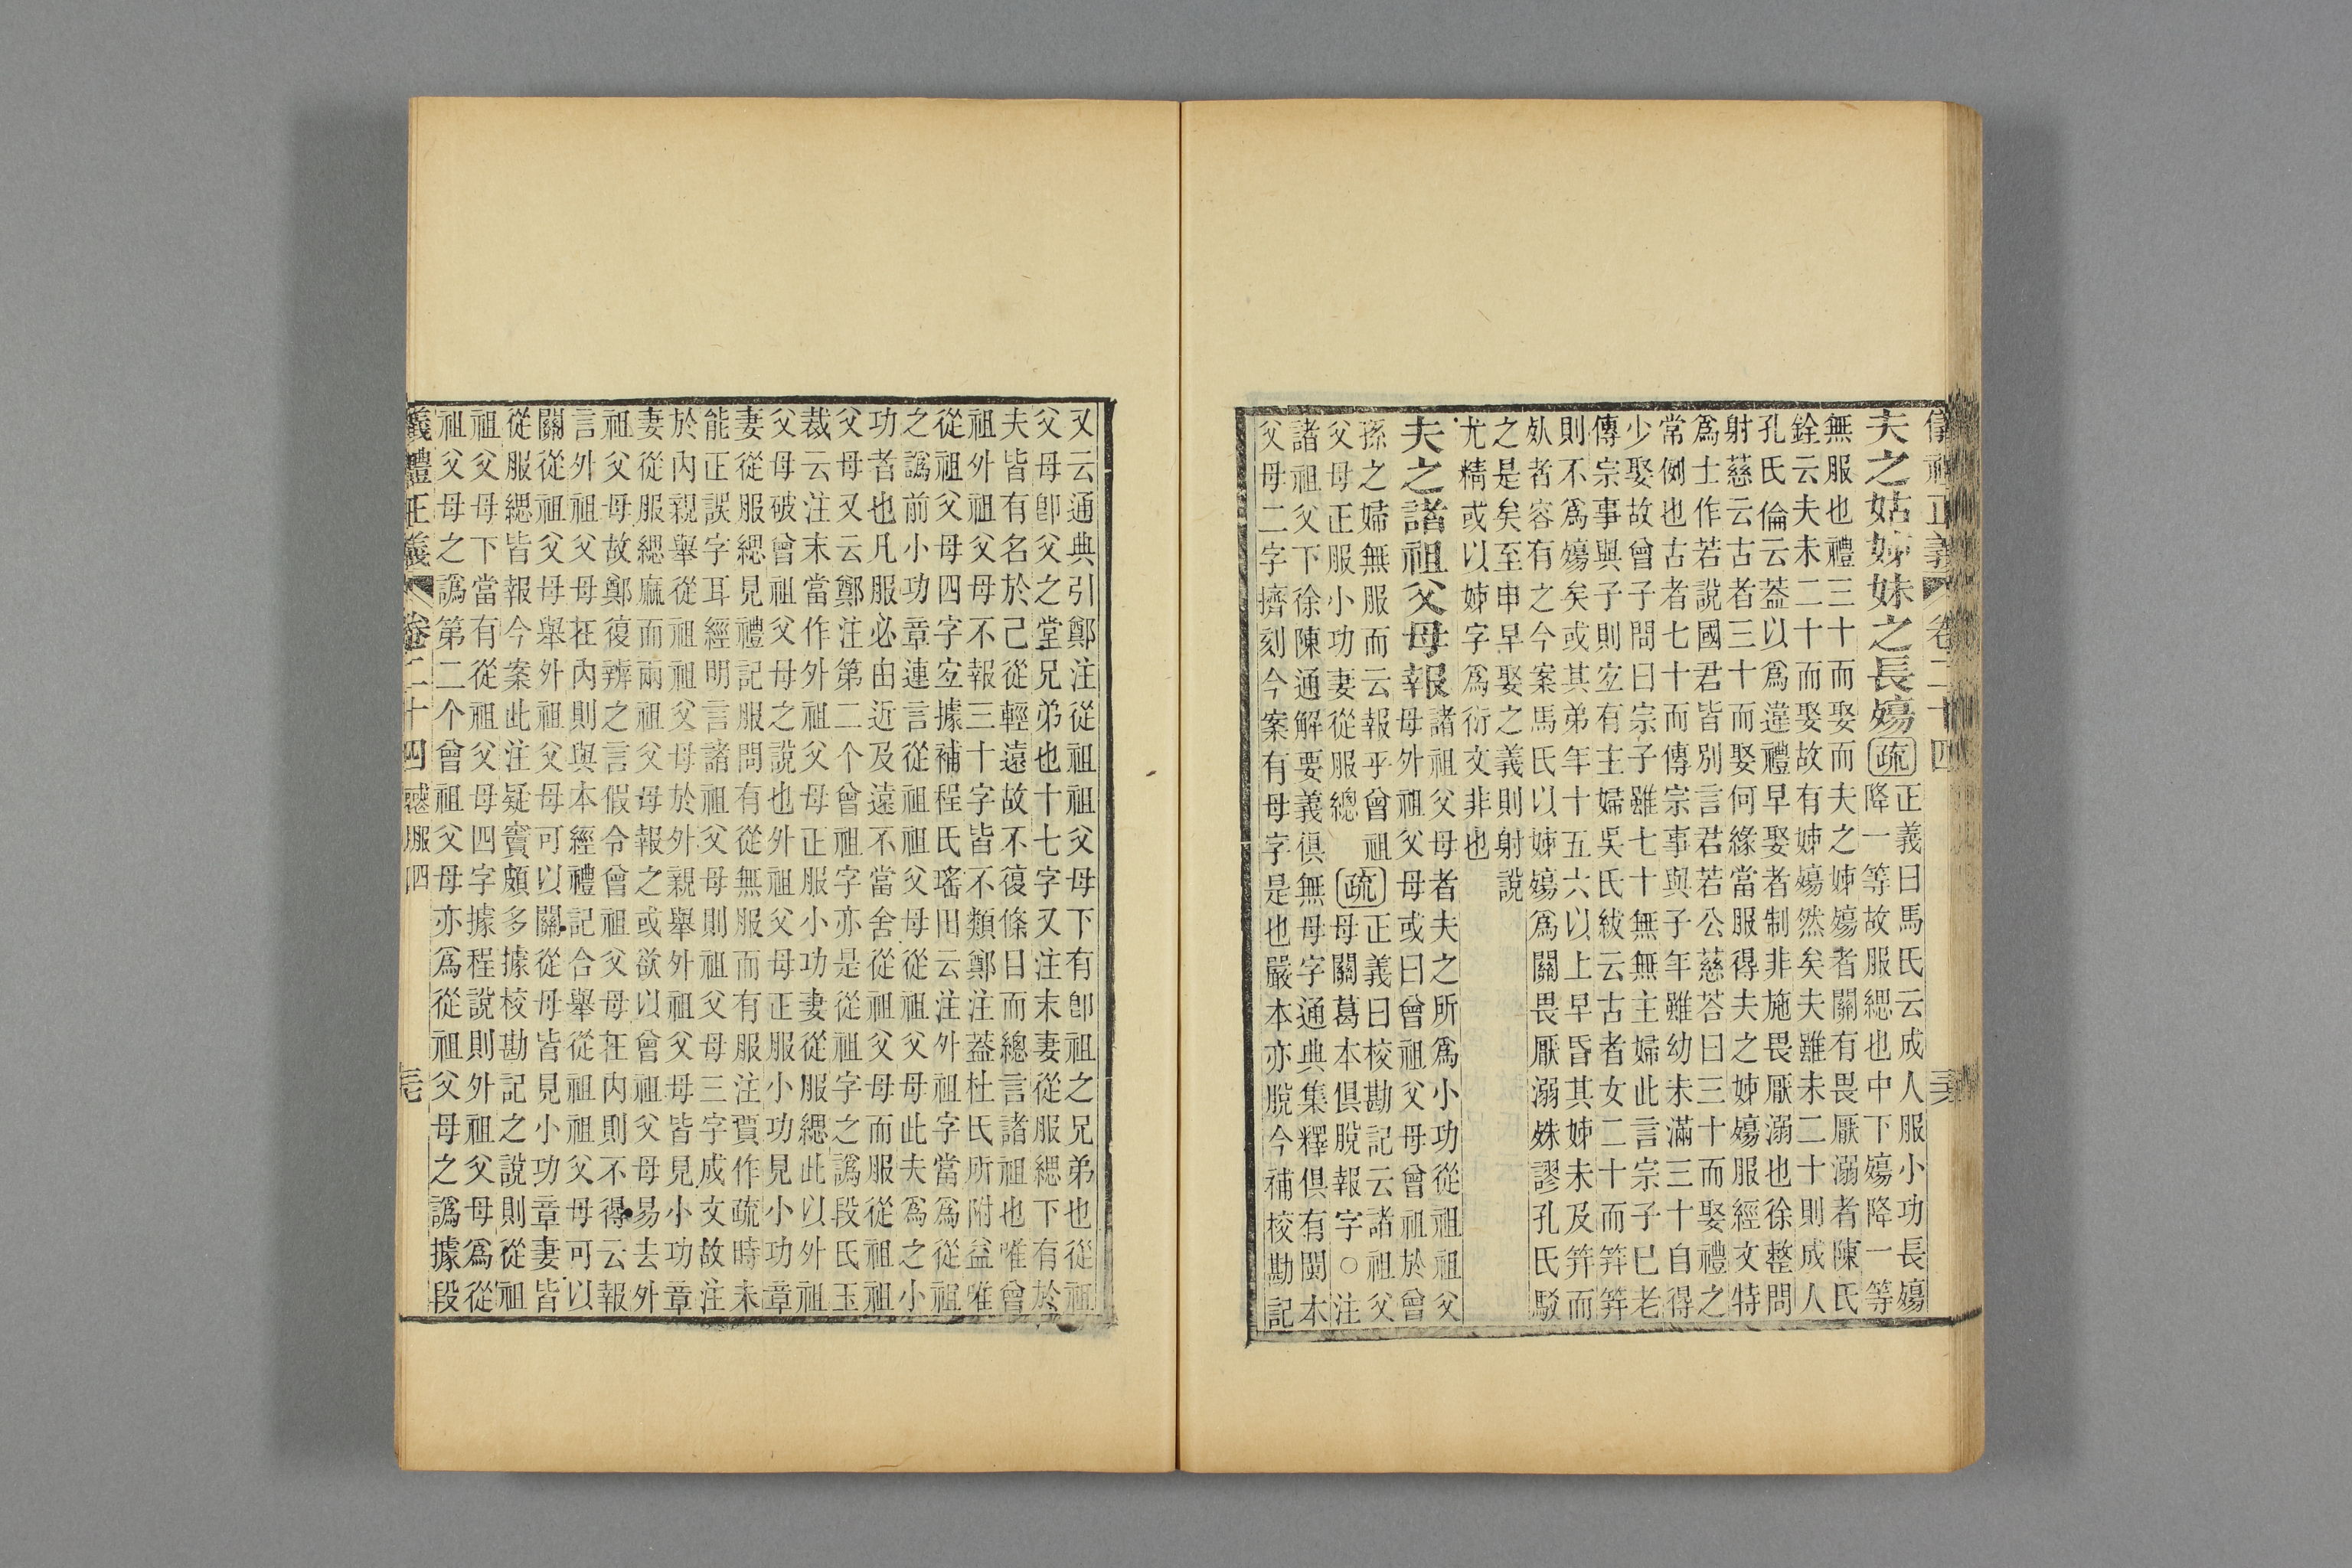 儀禮正義 卷二十四
夫之姑姊妹之長殤[疏]正義曰馬氏云成人服小功長殤
降一等故服緦也中下殤降一等
無服也禮三十而娶而夫之姊殤者關有畏厭溺者陳氏
銓云夫未二十而娶故有姊殤然矣夫雖未二十則成人
孔氏倫云蓋以爲違禮早娶者制非施畏厭溺也徐整問
射慈云古者三十而娶何緣當服得夫之姊殤服經文特
爲士作若說國君皆別言君若公慈荅曰三十而娶禮之
常例也古者七十而傳宗事與子年雖幼未滿三十自得
少娶故曾子問曰宗子雖七十無無主婦此言宗子已老
傳宗事與子則宐有主婦吳氏紱云古者女二十而筓筓
則不爲殤矣或其弟年十五六以上早昏其姊未及筓而
殀者容有之今案馬氏以姊殤爲關畏厭溺姝謬孔氏駁
之是矣至申早娶之義則射說
尤精或以姊字爲衍文非也
夫之諸祖父母報諸祖父母者夫之所爲小功從祖祖父
母外祖父母或曰曾祖父母曾祖於曾
孫之婦無服而云報乎曾祖
父母正服小功妻從服緦
[疏]正義曰校勘記云諸祖父
母關葛本俱脫報字○注
諸祖父下徐陳通解要義俱無母字通典集釋俱有閩本
父母二字擠刻今案有母字是也嚴本亦脫今補校勘記
又云通典引鄭注從祖祖父母下有卽祖之兄弟也從祖
父母卽父之堂兄弟也十七字又注末妻從服緦下有於
夫皆有名於己從輕遠故不復條目而總言諸祖也唯曾
祖外祖父母不報三十字皆不類鄭注蓋杜氏所附益唯
從祖父母四字宐據補程氏瑤田云注外祖字當爲從祖
之譌前小功章連言從祖祖父母從祖父母此夫爲之小
功者也凡服必由近及遠不當舍從祖父母而服從祖祖
父母又云鄭注第二个曾祖字亦是從祖字之譌段氏玉
裁云注末當作外祖父母正服小功妻從服緦此以外祖
父母破曾祖父母之說也外祖父母正服小功見小功章
妻從服緦見禮記服問有從無服而有服注賈作疏時未
能正誤字耳經明言諸祖父母則祖父母三字成文故注
於內親舉從祖祖父母於外親舉外祖父母皆見小功章
妻從服緦麻而兩祖父母報之或欲以曾祖父母易去外
祖父母故鄭復辨之言假令曾祖父母在內則不得云報
言外祖父母在內則與本經禮記合舉從祖祖父母可以
關從祖父母舉外祖父母可以關從母皆見小功章妻皆
從服緦皆報今案此注疑竇頗多據校勘記之說則從祖
祖父母下當有從祖父母四字據程說則外祖父母爲從
祖父母之譌第二个曾祖父母亦爲從祖父母之譌據段
儀禮正義 卷二十四 喪服四